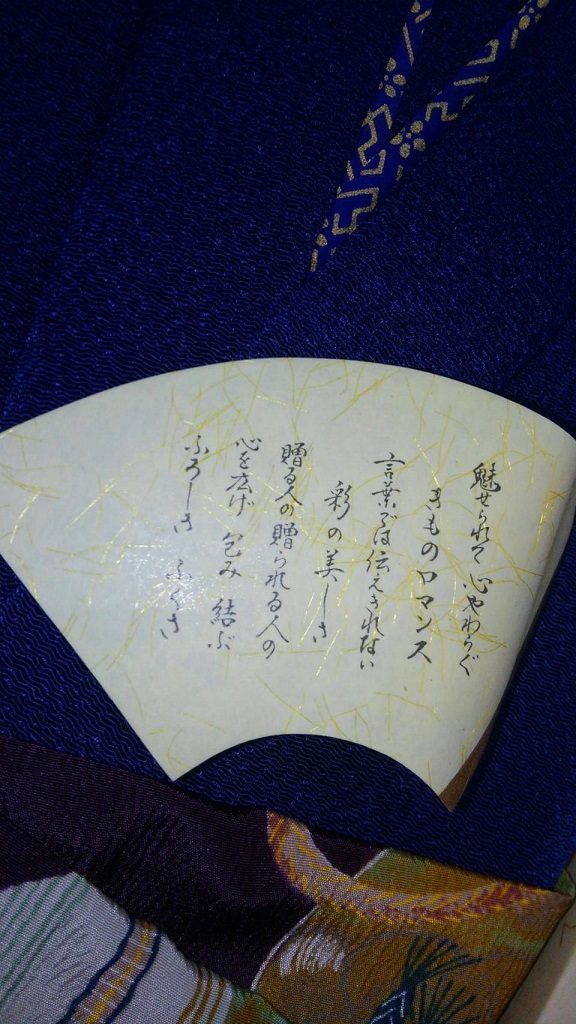 魅せられて 心やわらぐ
きものロマンス
言葉では伝えきれない
彩の美しさ
贈る人の贈られる人の
心を広げ 包み 結ぶ
ふろしき ふくさ